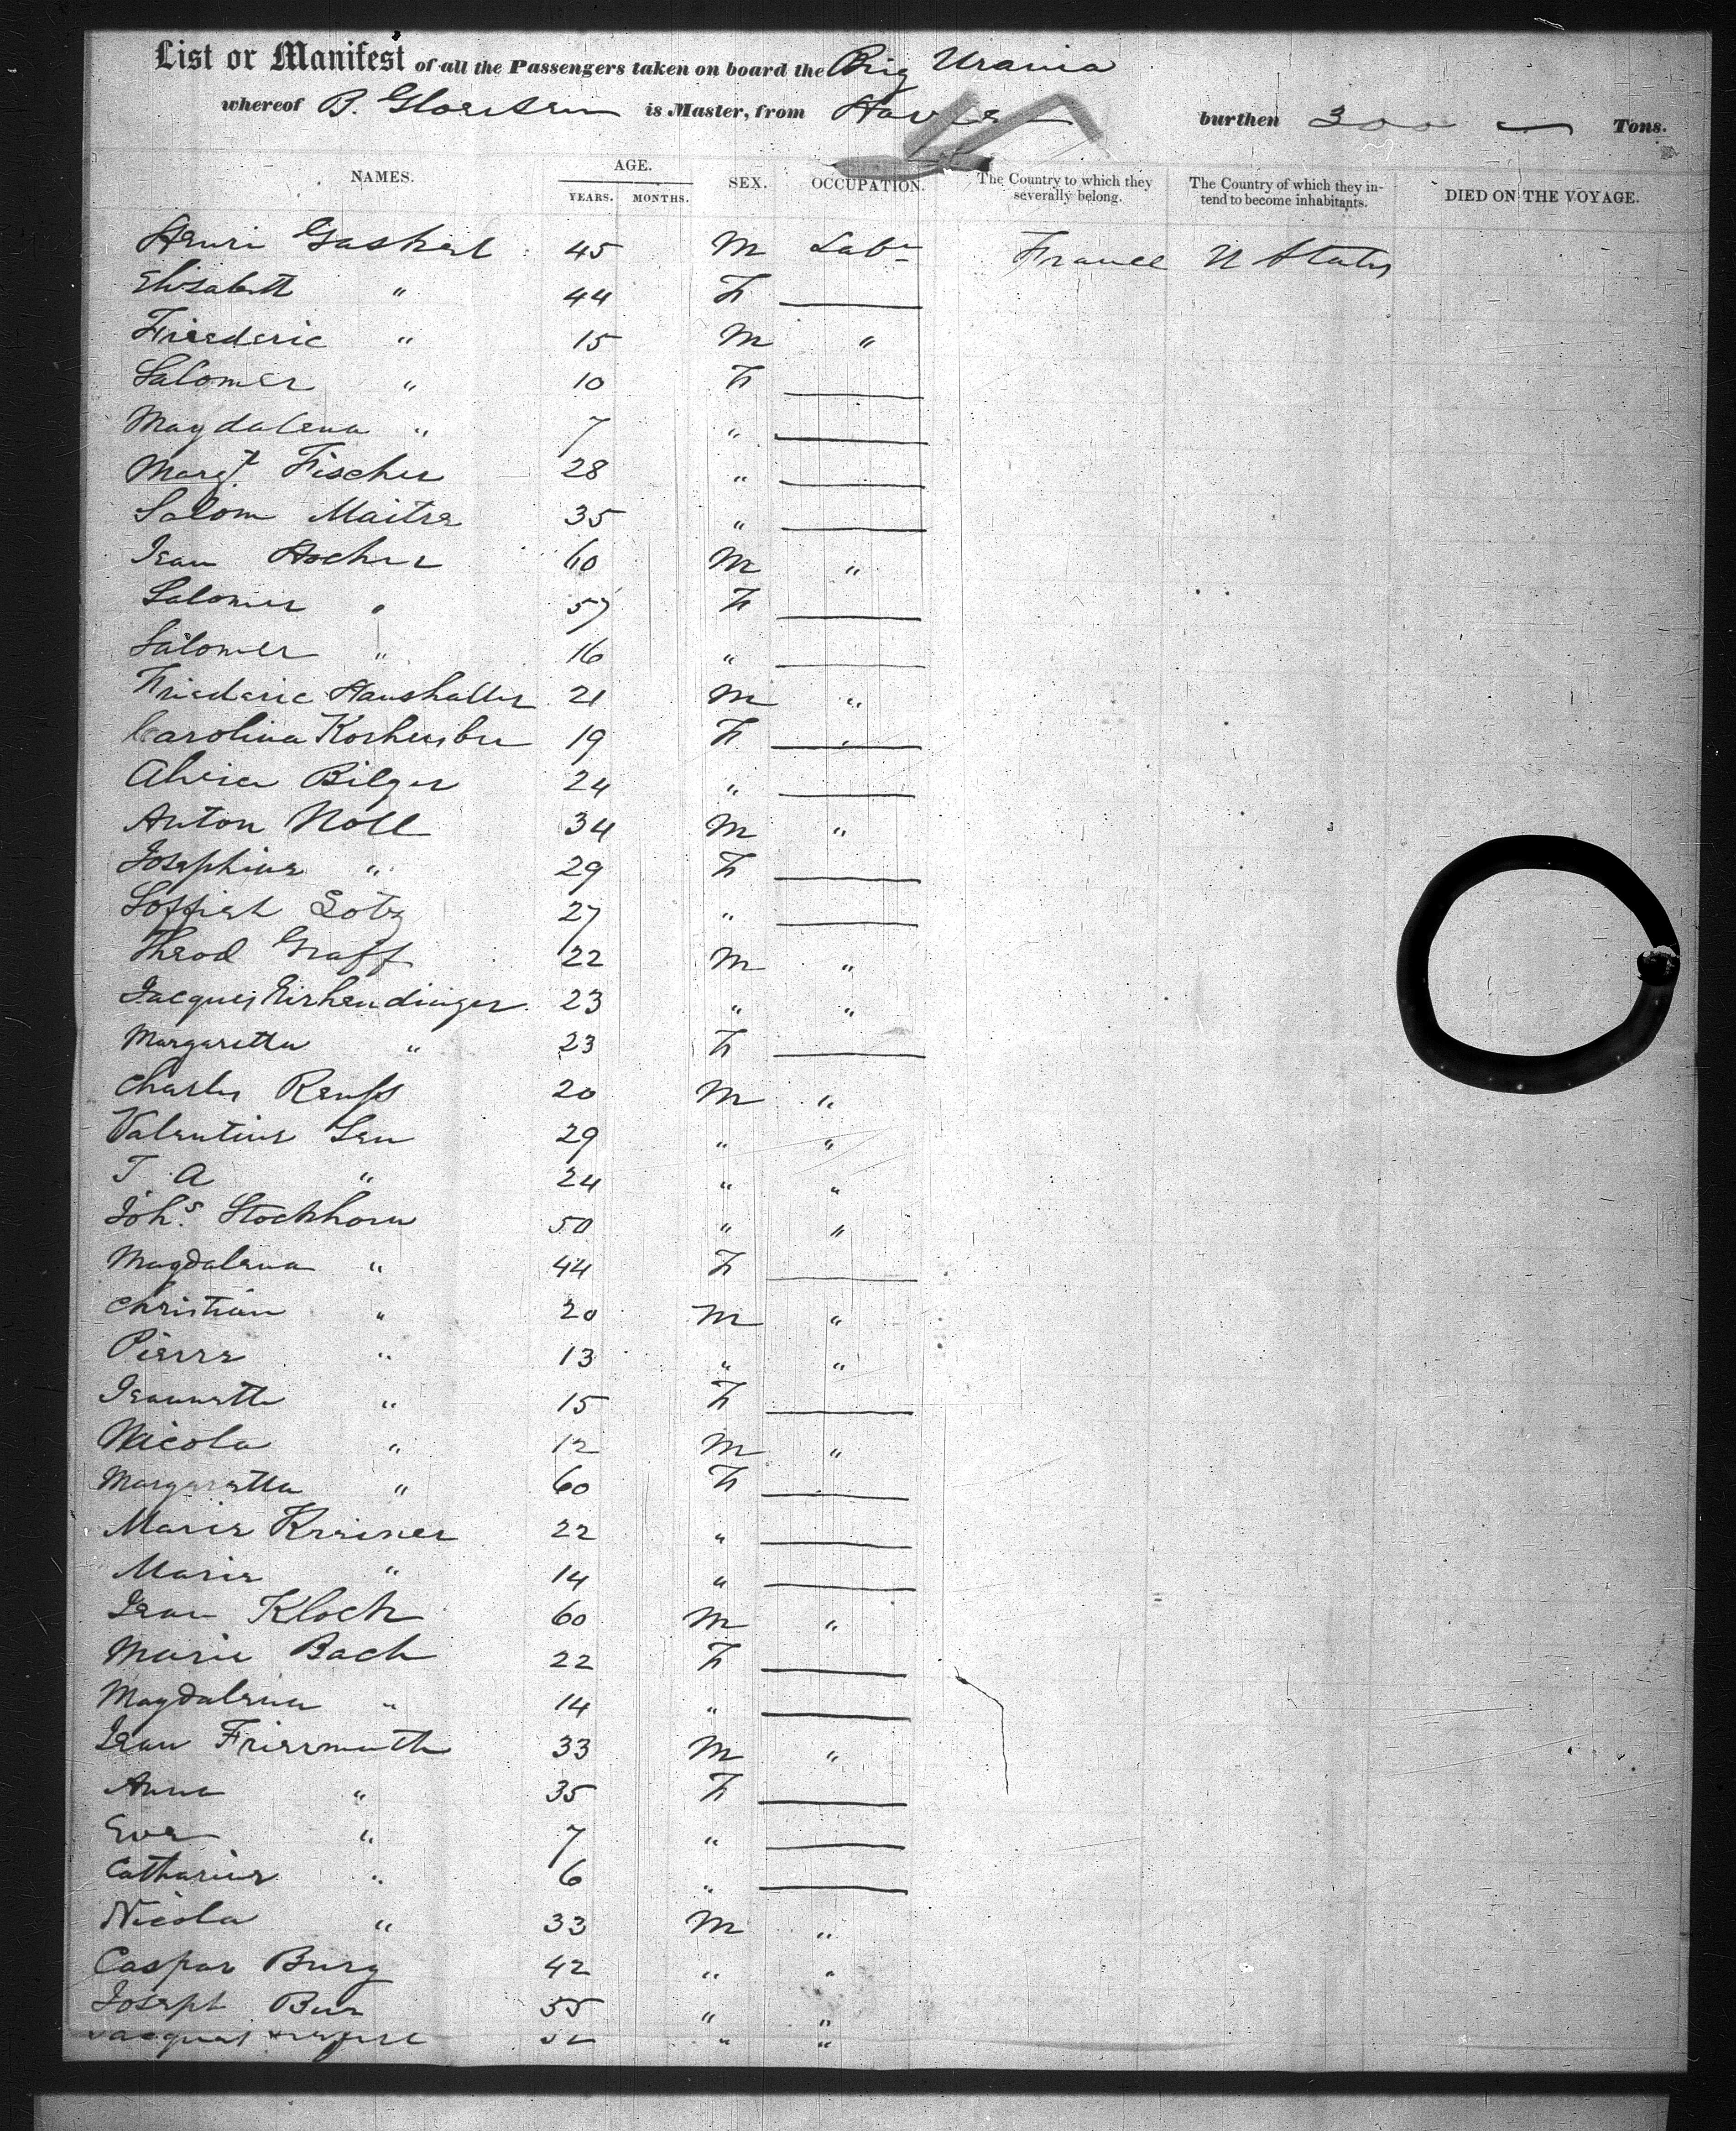 List or Manifest of all the Passengers taken on board the Brig Urania
whereof B. is Master, from Havre burthen 300 Tons.
NAMES. AGE. YEARS. MONTHS. SEX. OCCUPATION. The Country to which they severally belong. The Country of which they intend to become inhabitants. DIED ON THE VOYAGE.
Henri 45 M Labr France U States
Elisabeth " 44 F
Friederic " 15 M "
Salomer " 10 F
Magdalena " 7 "
Margt Fischer 28 "
Salom Maitre 35 "
Jean Hocher 60 M "
Salomer " 57 F
Salomer " 16 "
Friederic Haushalter 21 M "
Carolina 19 F
Bilger 24 "
Anton Noll 34 M "
Josephine " 29 F
27 "
Theod Graff 22 M "
Jacques 23 " "
Margaretta " 23 F
Charles Reuss 20 M "
Valentine 29 " "
J A " 24 " "
Johs Stockhorn 50 " "
Magdalena " 44 F
Christian " 20 M "
Pierre " 13 " "
Jeannette " 15 F
Nicola " 12 M "
Margaretta " 60 F
Marie Kreiner 22 "
Marie " 14 "
Jean Kloch 60 M "
Marie Bach 22 F
Magdalena " 14 "
Jean Friermuth 33 M "
Anna " 35 F
Eve " 7 "
Catharine " 6 "
Nicola " 33 M "
Caspar Burg 42 " "
Joseph 55 " "
Jacques " "